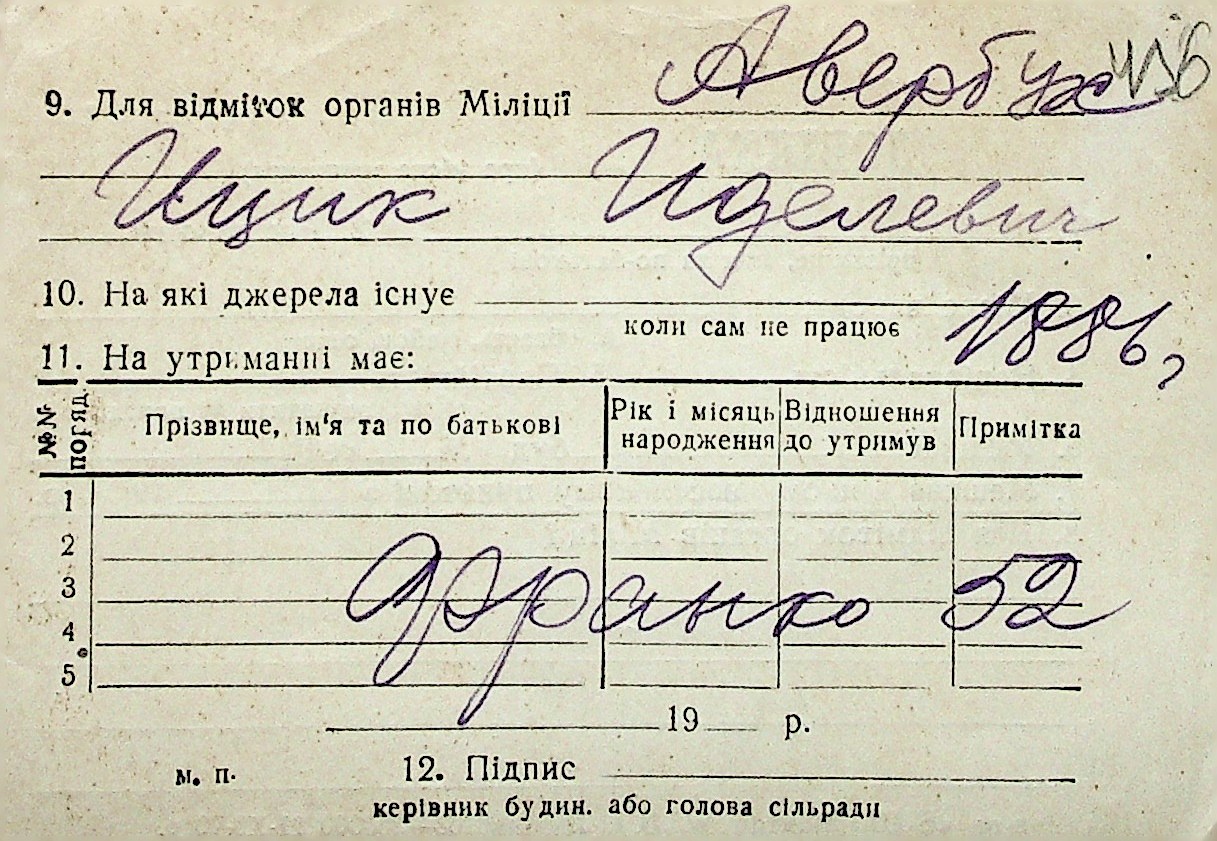 Авербух 436
9. Для відміток органів Міліції
Ицик Иделевич
10. На які джерела існує
коли сам не працює
1886,
11. На утриманні має:
№№ поряд. Прізвище, ім'я та по батькові Рік і місяць народження Відношення до утримув Примітка
1
2
3
Франко 52
4
5
19 р.
м. п. 12. Підпис
керівник будин. або голова сільради